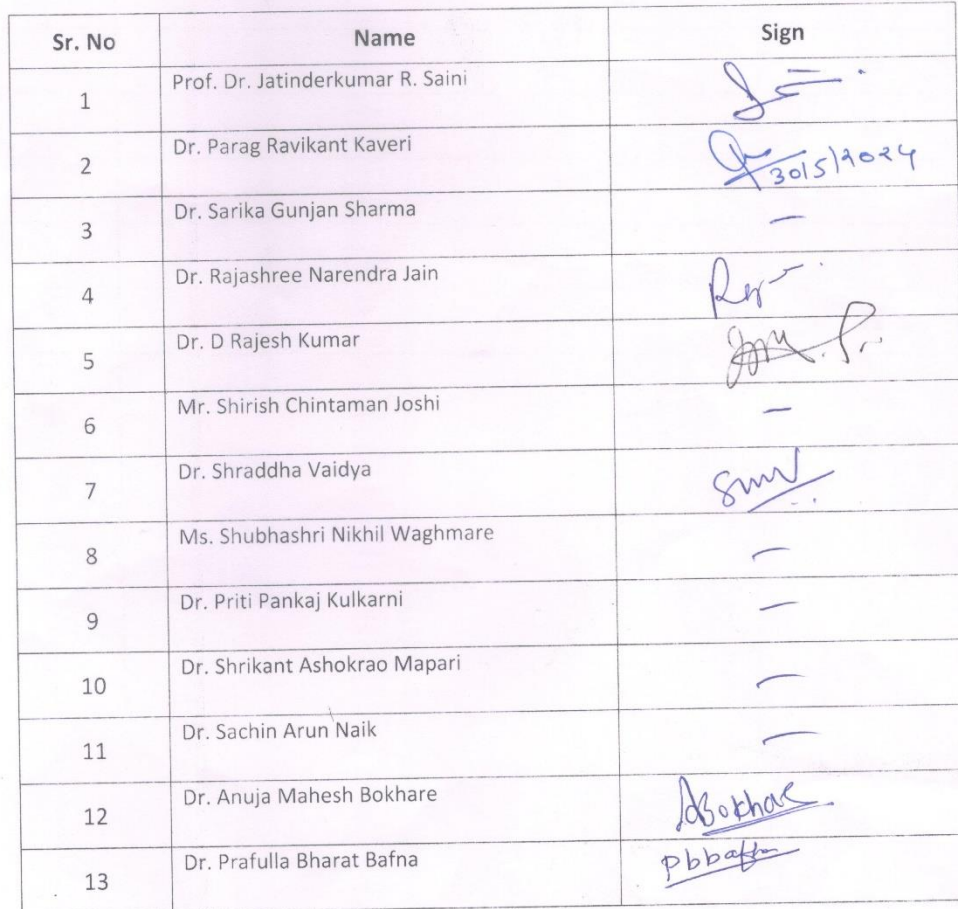 Sr. No Name Sign
1 Prof. Dr. Jatinderkumar R. Saini
2 Dr. Parag Ravikant Kaveri 30/5/2024
3 Dr. Sarika Gunjan Sharma —
4 Dr. Rajashree Narendra Jain
5 Dr. D Rajesh Kumar
6 Mr. Shirish Chintaman Joshi —
7 Dr. Shraddha Vaidya
8 Ms. Shubhashri Nikhil Waghmare —
9 Dr. Priti Pankaj Kulkarni —
10 Dr. Shrikant Ashokrao Mapari —
11 Dr. Sachin Arun Naik —
12 Dr. Anuja Mahesh Bokhare ABokhare
13 Dr. Prafulla Bharat Bafna pbbafna